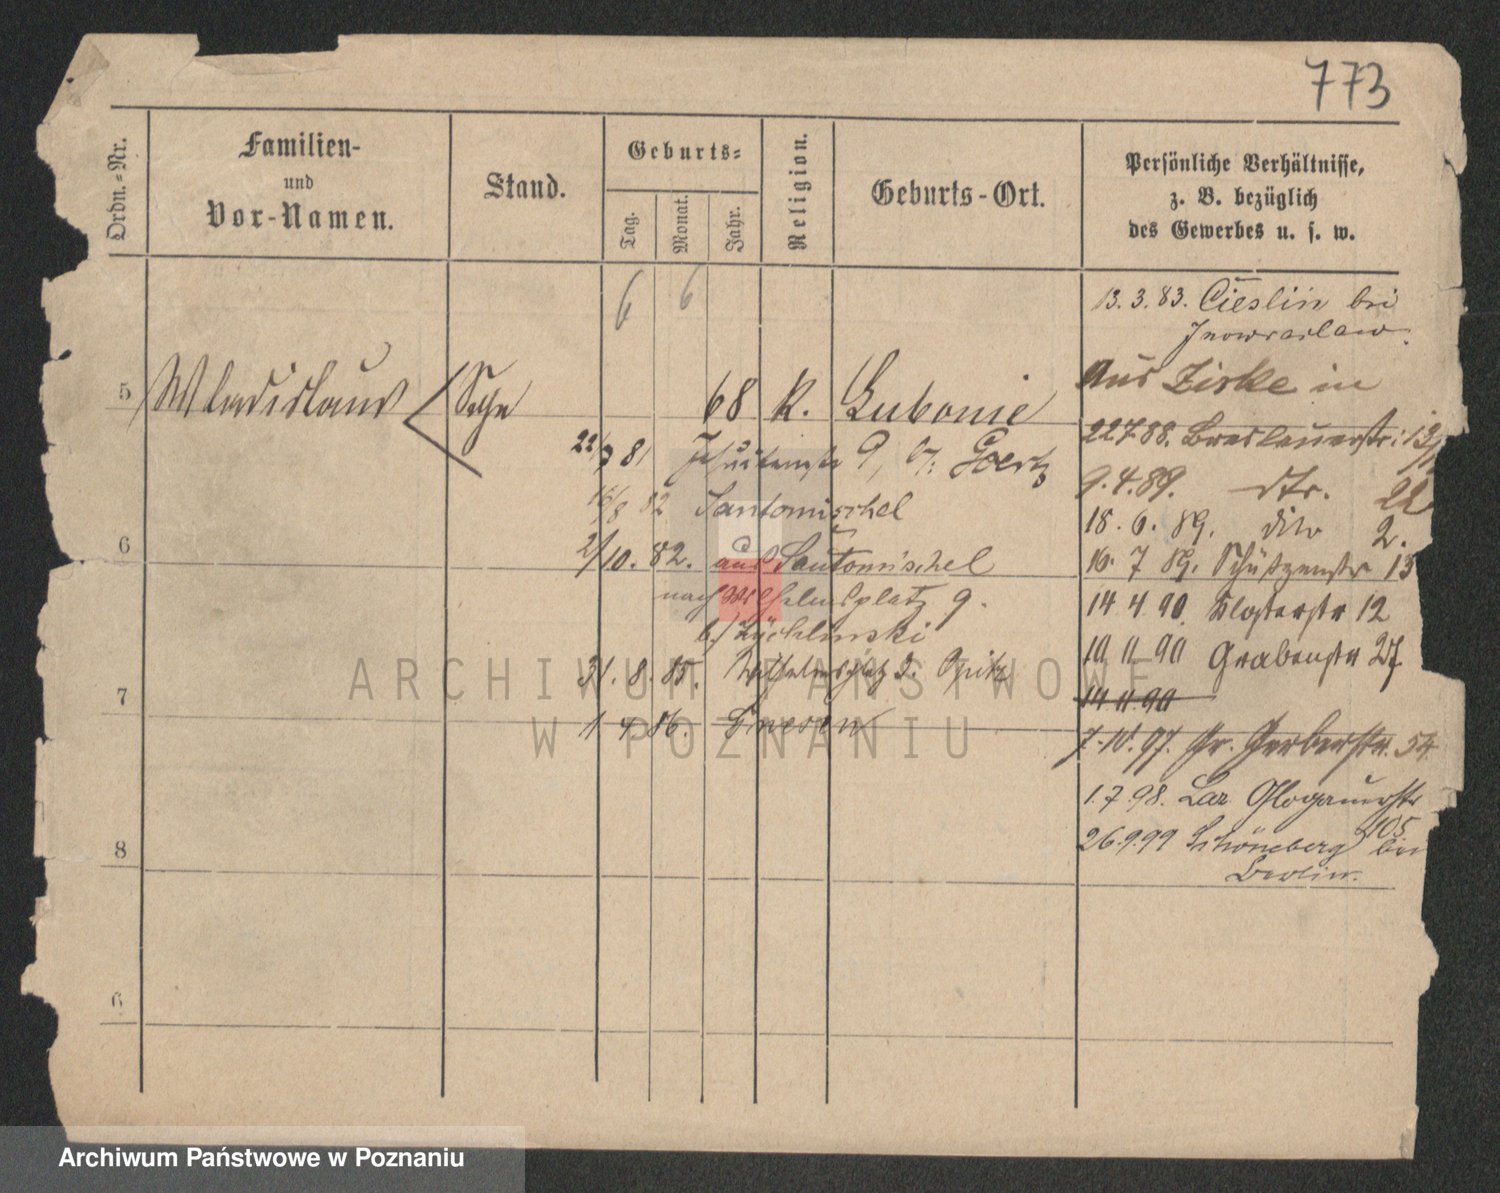 773
Ordn.-Nr.
Familien-
und
Vor-Namen.
Stand.
Geburts-
Tag.
Monat.
Jahr.
Religion.
Geburts-Ort.
Persönliche Verhältnisse,
z. B. bezüglich
des Gewerbes u. s. w.
6 6
13.3.83. Cieslin bei
Inowraclaw.
5 Wladislaus Sohn 68 k. Lubonie
Aus Zirke in
22.7.88. Breslauerstr. 13/
81 9, b. Goertz
9.4.89. dto. 22
16/8 82 Santomischel
18.6.89. dito 2.
6
2/10.82. aus Santomischel
16.7.89. Schützenstr 13
nach Wilhelmsplatz 9.
14 4.90. Klosterstr 12
b. Zychlinski
10 11 90 Grabenstr 27.
31.8.85. Wilhelmsplatz 2. Opitz
7
14 11 90
1 4 86. Gnesen
7.10.97. Gr. Gerberstr. 54
1.7.98. Laz. Glogauerstr
105
8
26.9.99 Schöneberg bei
Berlin.
9
ARCHIWUM PAŃSTWOWE
W POZNANIU
Archiwum Państwowe w Poznaniu